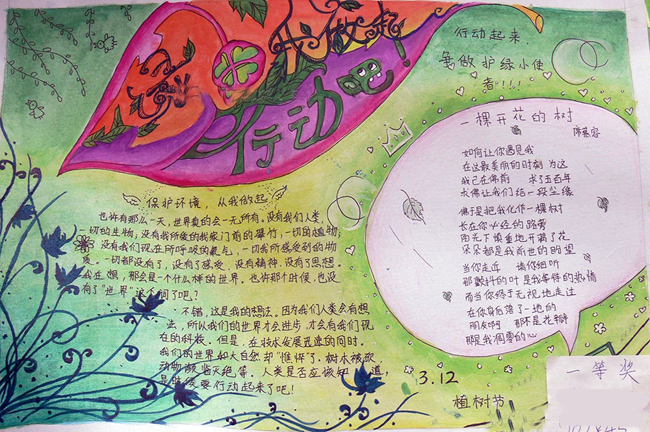 从我做起
行动吧!
行动起来,
争做护绿小使
者!!!
一棵开花的树
席慕容
如何让你遇见我
在这最美丽的时刻 为这
我已在佛前 求了五百年
求佛让我们结一段尘缘
佛于是把我化作一棵树
长在你必经的路旁
阳光下慎重地开满了花
朵朵都是我前世的盼望
当你走近 请你细听
那颤抖的叶是我等待的热情
而当你终于无视地走过
在你身后落了一地的
朋友啊 那不是花瓣
那是我凋零的心
保护环境,从我做起
也许有那么一天,世界真的会一无所有,没有我们人类,
一切的生物,没有我所爱的我家门前的翠竹,一切的植物;
没有我们现在所呼吸的氧气,一切我所感受到的物
质。一切都没有了,没有了感受,没有精神,没有了思想。
我在想,那会是一个什么样的世界,也许那个时候,也没
有了“世界”这个词了吧?
不错,这是我的想法。因为我们人类会有想
法,所以我们的世界才会进步,才会有我们现
在的科技。但是,在技术发展迅速的同时,
我们的世界如大自然却“憔悴”了,树木被砍
动物濒临灭绝等,人类是否应该知道,
是时候要行动起来了吧!
3.12
植树节
一等奖